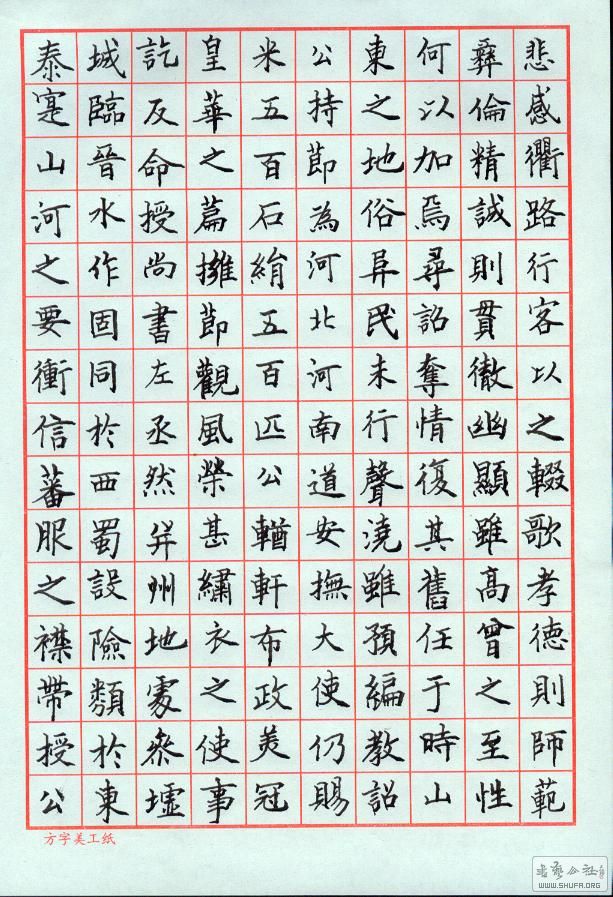 悲感衢路行客以之輟歌孝德則師範
彝倫精誠則貫徹幽顯雖高曾之至性
何以加焉尋詔奪情復其舊任于時山
東之地俗阜民未行聲澆雖預編教詔
公持節為河北河南道安撫大使仍賜
米五百石絹五百匹公輶軒布政美冠
皇華之篇擁節觀風榮甚繡衣之使事
訖反命授尚書左丞然并州地處參墟
城臨晉水作固同於西蜀設險類於東
泰寔山河之要衝信蕃服之襟帶授公
方字美工纸
WWW.SHUFA.ORG